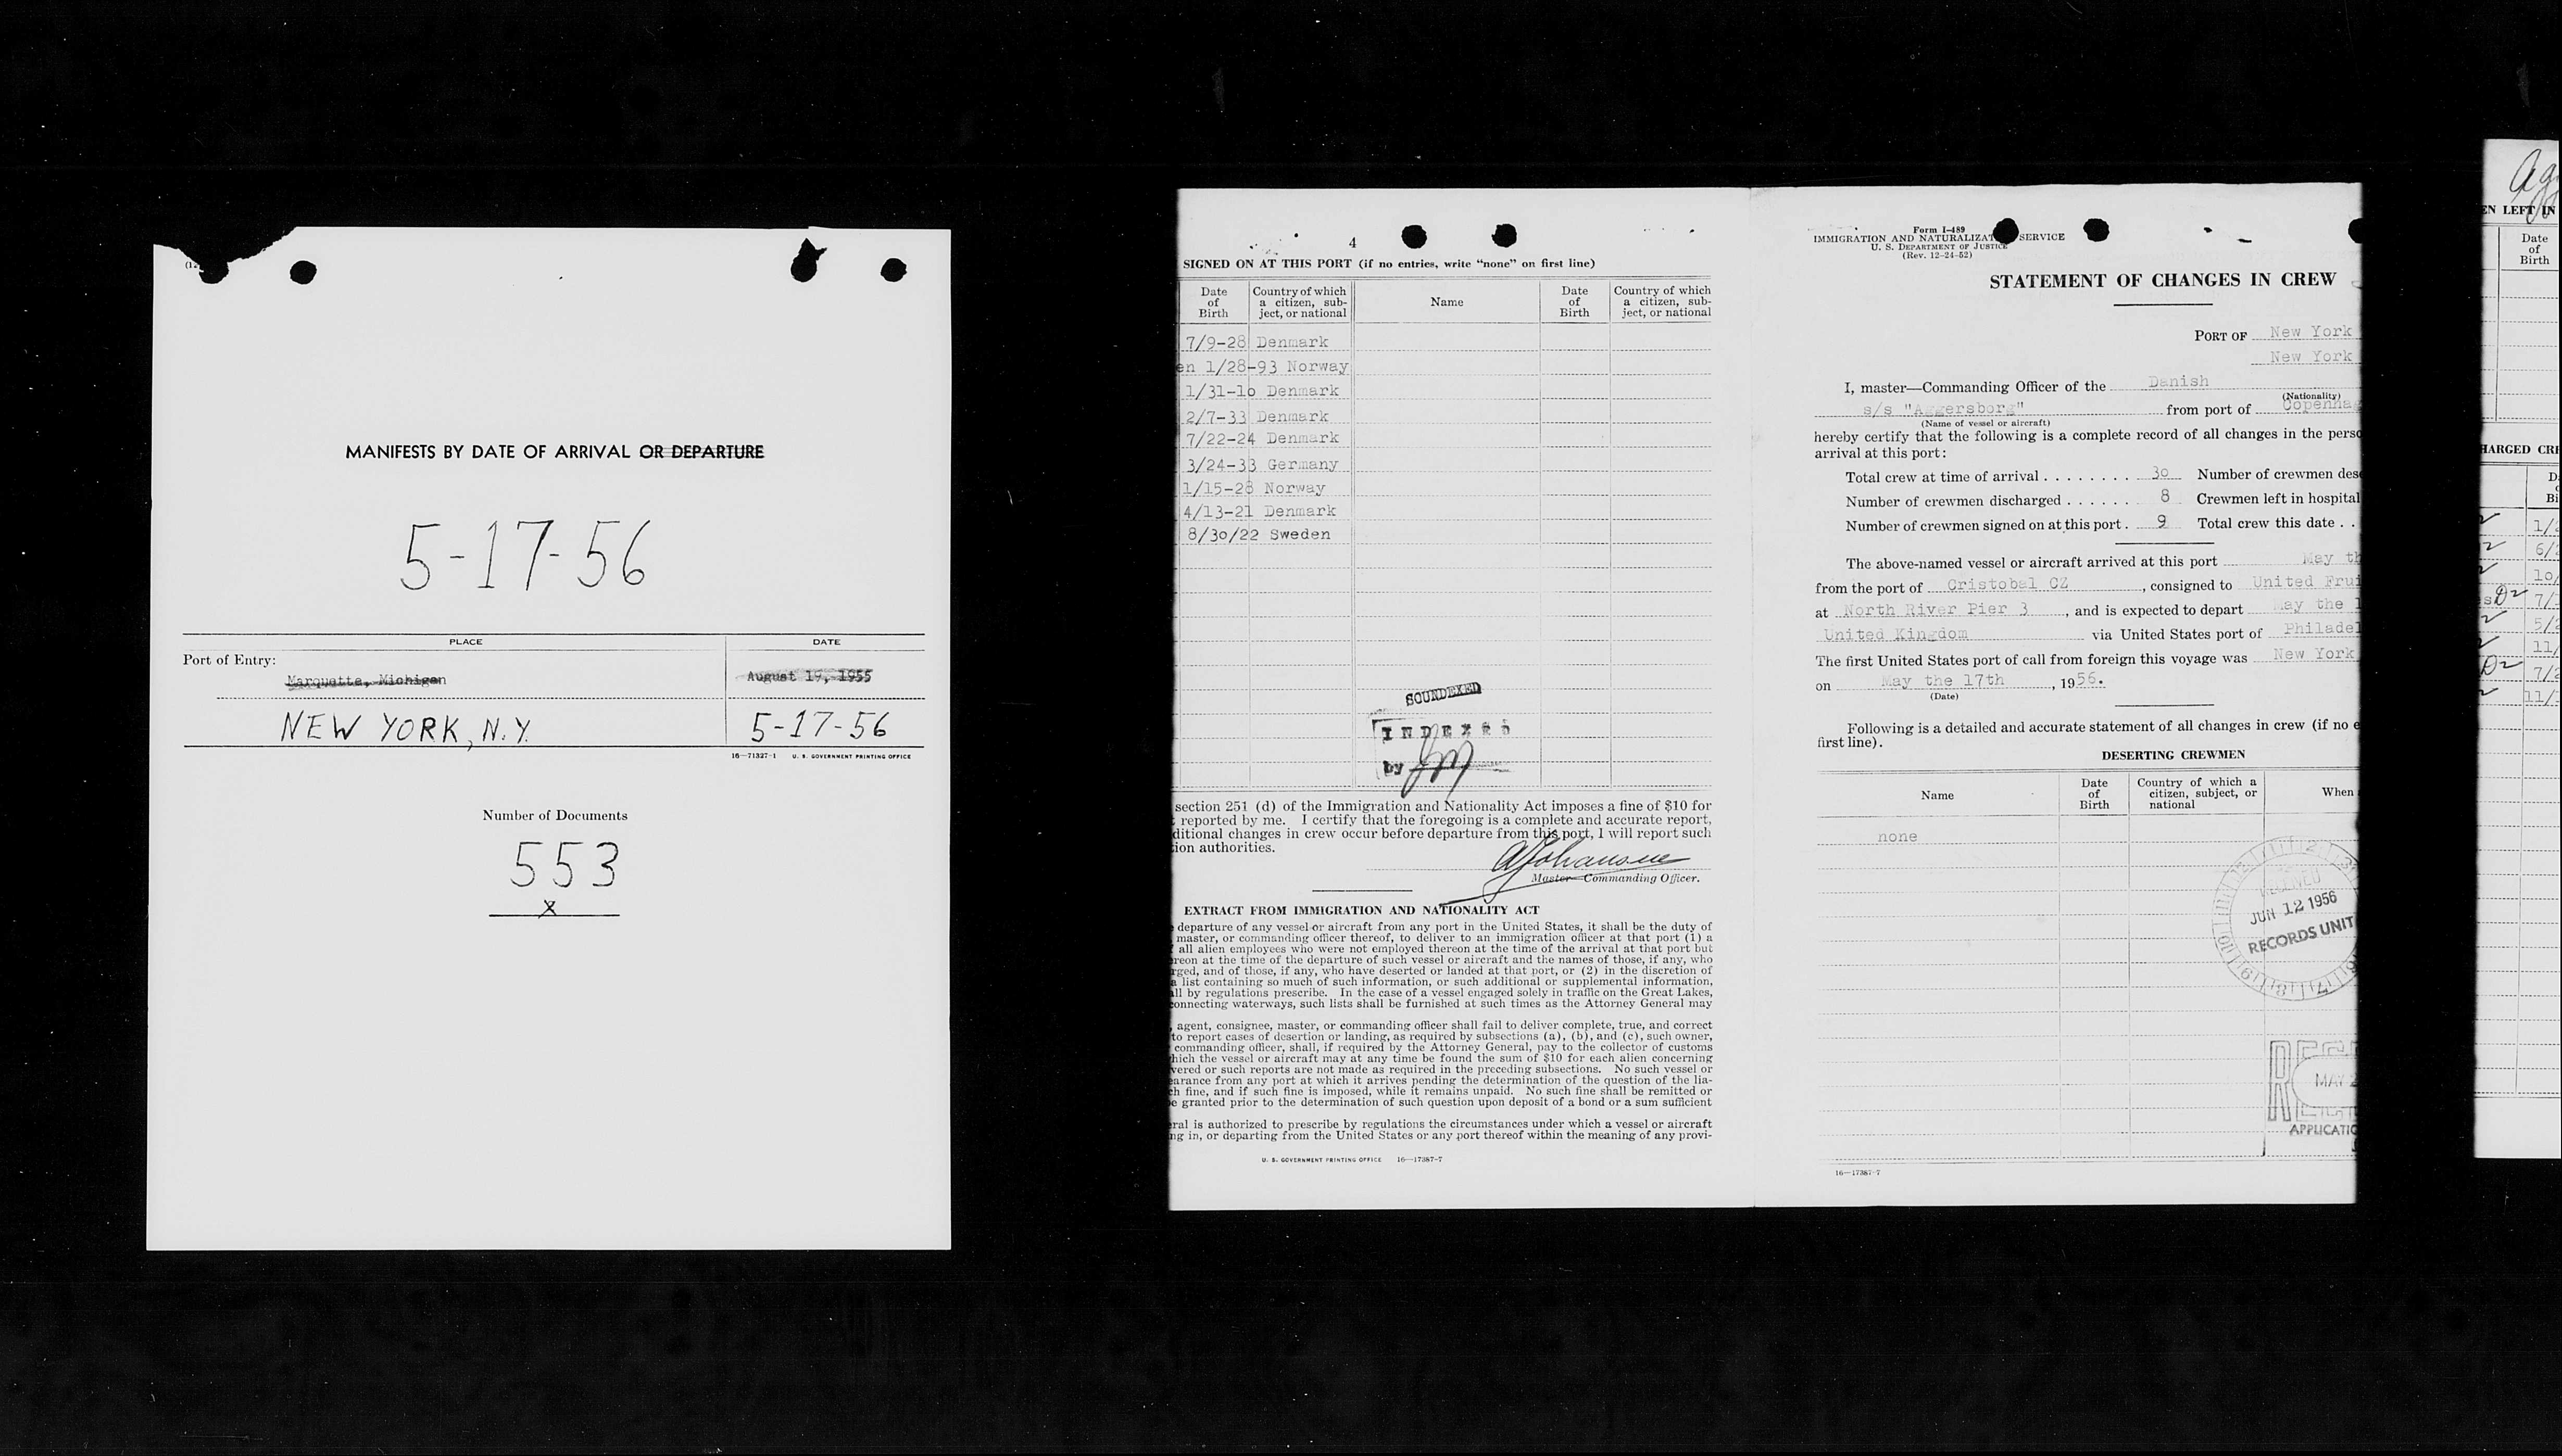 MANIFESTS BY DATE OF ARRIVAL OR DEPARTURE
5-17-56
PLACE
DATE
Port of Entry:
Marquette, Michigan
August 19, 1955
NEW YORK, N.Y.
5-17-56
16—71327-1 U. S. GOVERNMENT PRINTING OFFICE
Number of Documents
553
x
4
SIGNED ON AT THIS PORT (if no entries, write “none” on first line)
Date of Birth
Country of which a citizen, sub-ject, or national
Name
Date of Birth
Country of which a citizen, sub-ject, or national
7/9-28 Denmark
en 1/28-93 Norway
1/31-10 Denmark
2/7-33 Denmark
7/22-24 Denmark
3/24-33 Germany
1/15-28 Norway
4/13-21 Denmark
8/30/22 Sweden
SOUNDEXED
INDEXED
by
section 251 (d) of the Immigration and Nationality Act imposes a fine of $10 for
reported by me. I certify that the foregoing is a complete and accurate report,
ditional changes in crew occur before departure from this port, I will report such
ion authorities.
Master—Commanding Officer.
EXTRACT FROM IMMIGRATION AND NATIONALITY ACT
departure of any vessel or aircraft from any port in the United States, it shall be the duty of
master, or commanding officer thereof, to deliver to an immigration officer at that port (1) a
all alien employees who were not employed thereon at the time of the arrival at that port but
reon at the time of the departure of such vessel or aircraft and the names of those, if any, who
rged, and of those, if any, who have deserted or landed at that port, or (2) in the discretion of
a list containing so much of such information, or such additional or supplemental information,
ll by regulations prescribe. In the case of a vessel engaged solely in traffic on the Great Lakes,
onnecting waterways, such lists shall be furnished at such times as the Attorney General may
, agent, consignee, master, or commanding officer shall fail to deliver complete, true, and correct
to report cases of desertion or landing, as required by subsections (a), (b), and (c), such owner,
commanding officer, shall, if required by the Attorney General, pay to the collector of customs
hich the vessel or aircraft may at any time be found the sum of $10 for each alien concerning
vered or such reports are not made as required in the preceding subsections. No such vessel or
earance from any port at which it arrives pending the determination of the question of the lia-
h fine, and if such fine is imposed, while it remains unpaid. No such fine shall be remitted or
e granted prior to the determination of such question upon deposit of a bond or a sum sufficient
ral is authorized to prescribe by regulations the circumstances under which a vessel or aircraft
ng in, or departing from the United States or any port thereof within the meaning of any provi-
U. S. GOVERNMENT PRINTING OFFICE 16—17387-7
Form I-489
IMMIGRATION AND NATURALIZAT SERVICE
U. S. DEPARTMENT OF JUSTICE
(Rev. 12-24-52)
STATEMENT OF CHANGES IN CREW
PORT OF New York
New York
I, master—Commanding Officer of the Danish
(Nationality)
s/s "Aggersborg" from port of Copenhag
(Name of vessel or aircraft)
hereby certify that the following is a complete record of all changes in the perso
arrival at this port:
Total crew at time of arrival . . . . . . . . 30 Number of crewmen dese
Number of crewmen discharged . . . . . . 8 Crewmen left in hospital
Number of crewmen signed on at this port . 9 Total crew this date . .
The above-named vessel or aircraft arrived at this port May th
from the port of Cristobal CZ , consigned to United Frui
at North River Pier 3 , and is expected to depart May the 1
United Kingdom via United States port of Philadel
The first United States port of call from foreign this voyage was New York
on May the 17th , 1956.
(Date)
Following is a detailed and accurate statement of all changes in crew (if no e
first line).
DESERTING CREWMEN
Name
Date of Birth
Country of which a citizen, subject, or national
When
none
RECEIVED
JUN 12 1956
RECORDS UNIT
MAY 2
APPLICATIO
16—17387-7
EN LEFT IN
Date of Birth
HARGED CRE
1/
6/
10/
7/
5/
11/
7/2
11/